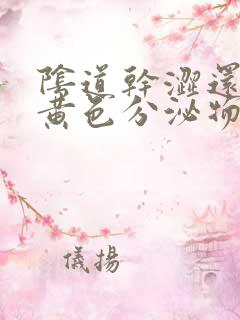 陰道幹澀還
黃色分泌物
儀揚